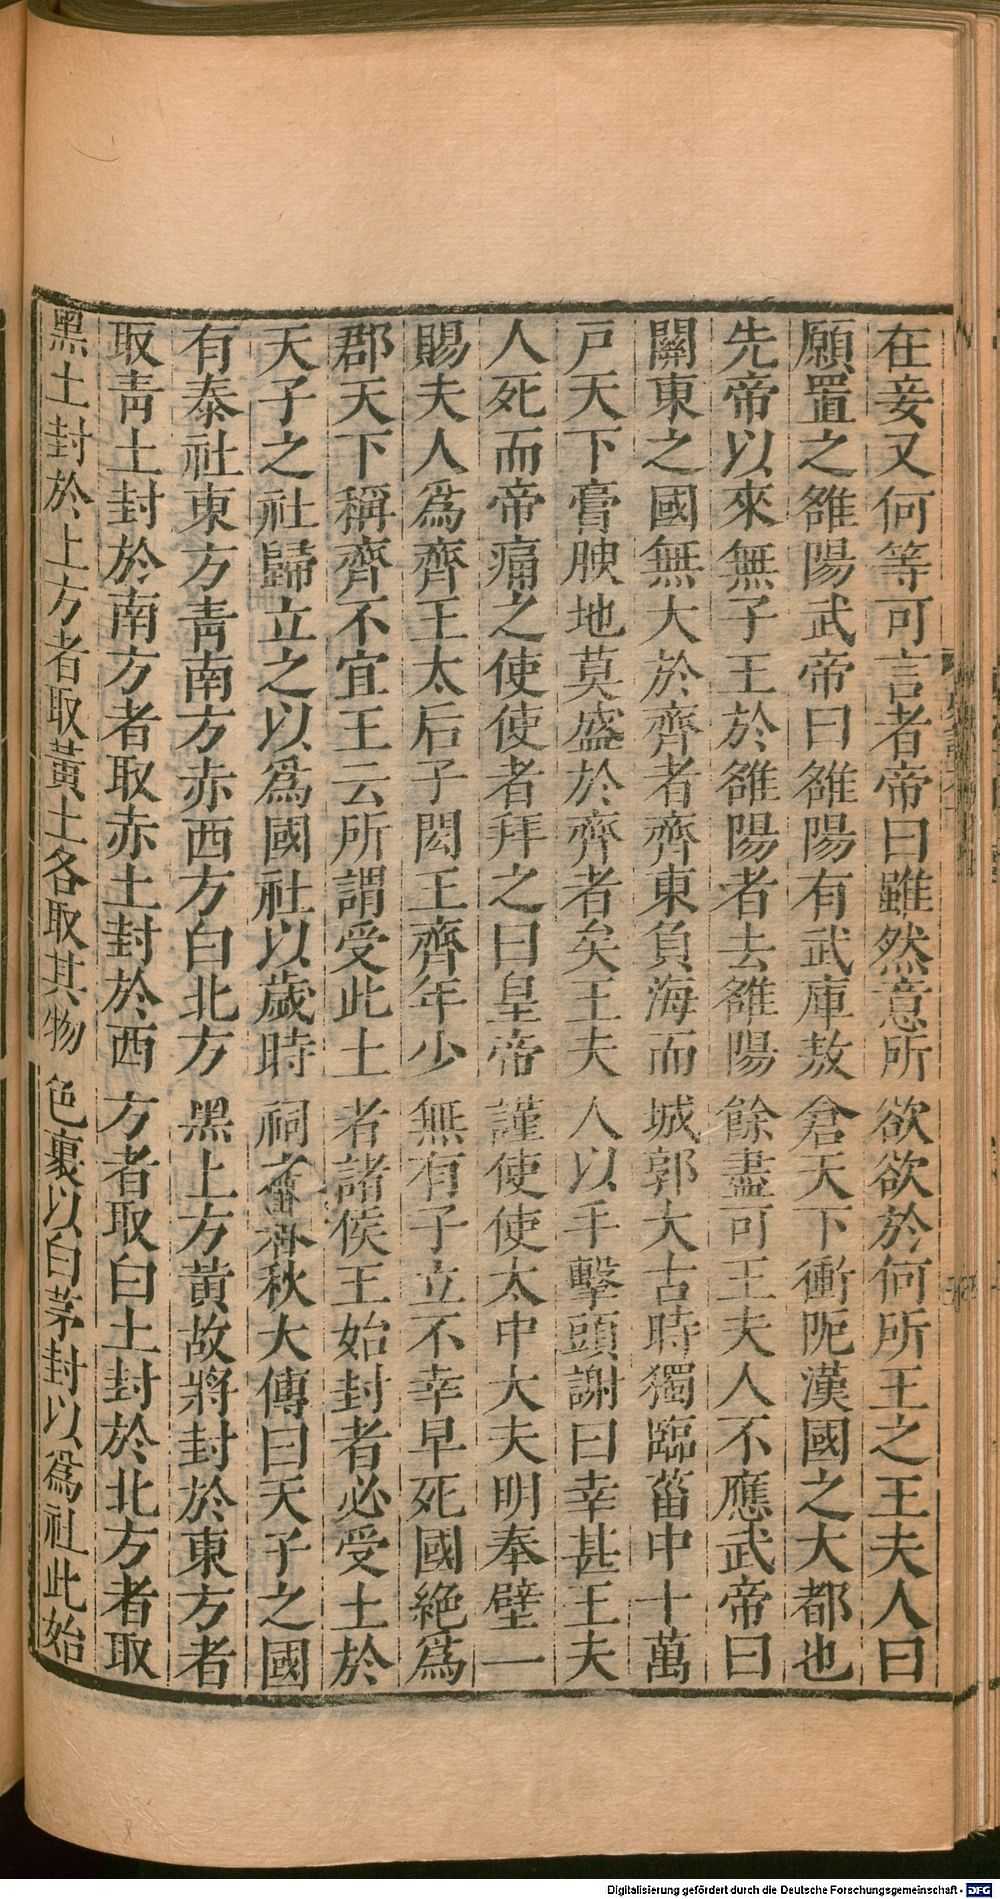 在妾又何等可言者帝曰雖然意所欲欲於何所王之王夫人曰
願置之雒陽武帝曰雒陽有武庫敖倉天下衝阨漢國之大都也
先帝以來無子王於雒陽者去雒陽餘盡可王夫人不應武帝曰
關東之國無大於齊者齊東負海而城郭大古時獨臨菑中十萬
戸天下膏腴地莫盛於齊者矣王夫人以手擊頭謝曰幸甚王夫
人死而帝痛之使使者拜之曰皇帝謹使使太中大夫明奉璧一
賜夫人爲齊王太后子閎王齊年少無有子立不幸早死國絶爲
郡天下稱齊不宜王云所謂受此土者諸侯王始封者必受土於
天子之社歸立之以爲國社以歲時祠之春秋大傳曰天子之國
有泰社東方青南方赤西方白北方黑上方黄故將封於東方者
取青土封於南方者取赤土封於西方者取白土封於北方者取
黑土封於上方者取黃土各取其物色裹以白茅封以爲社此始
Digitalisierung gefördert durch die Deutsche Forschungsgemeinschaft - DFG